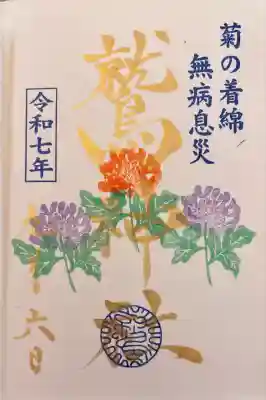 菊の着綿
無病息災
鷲神社
令和七年
六日